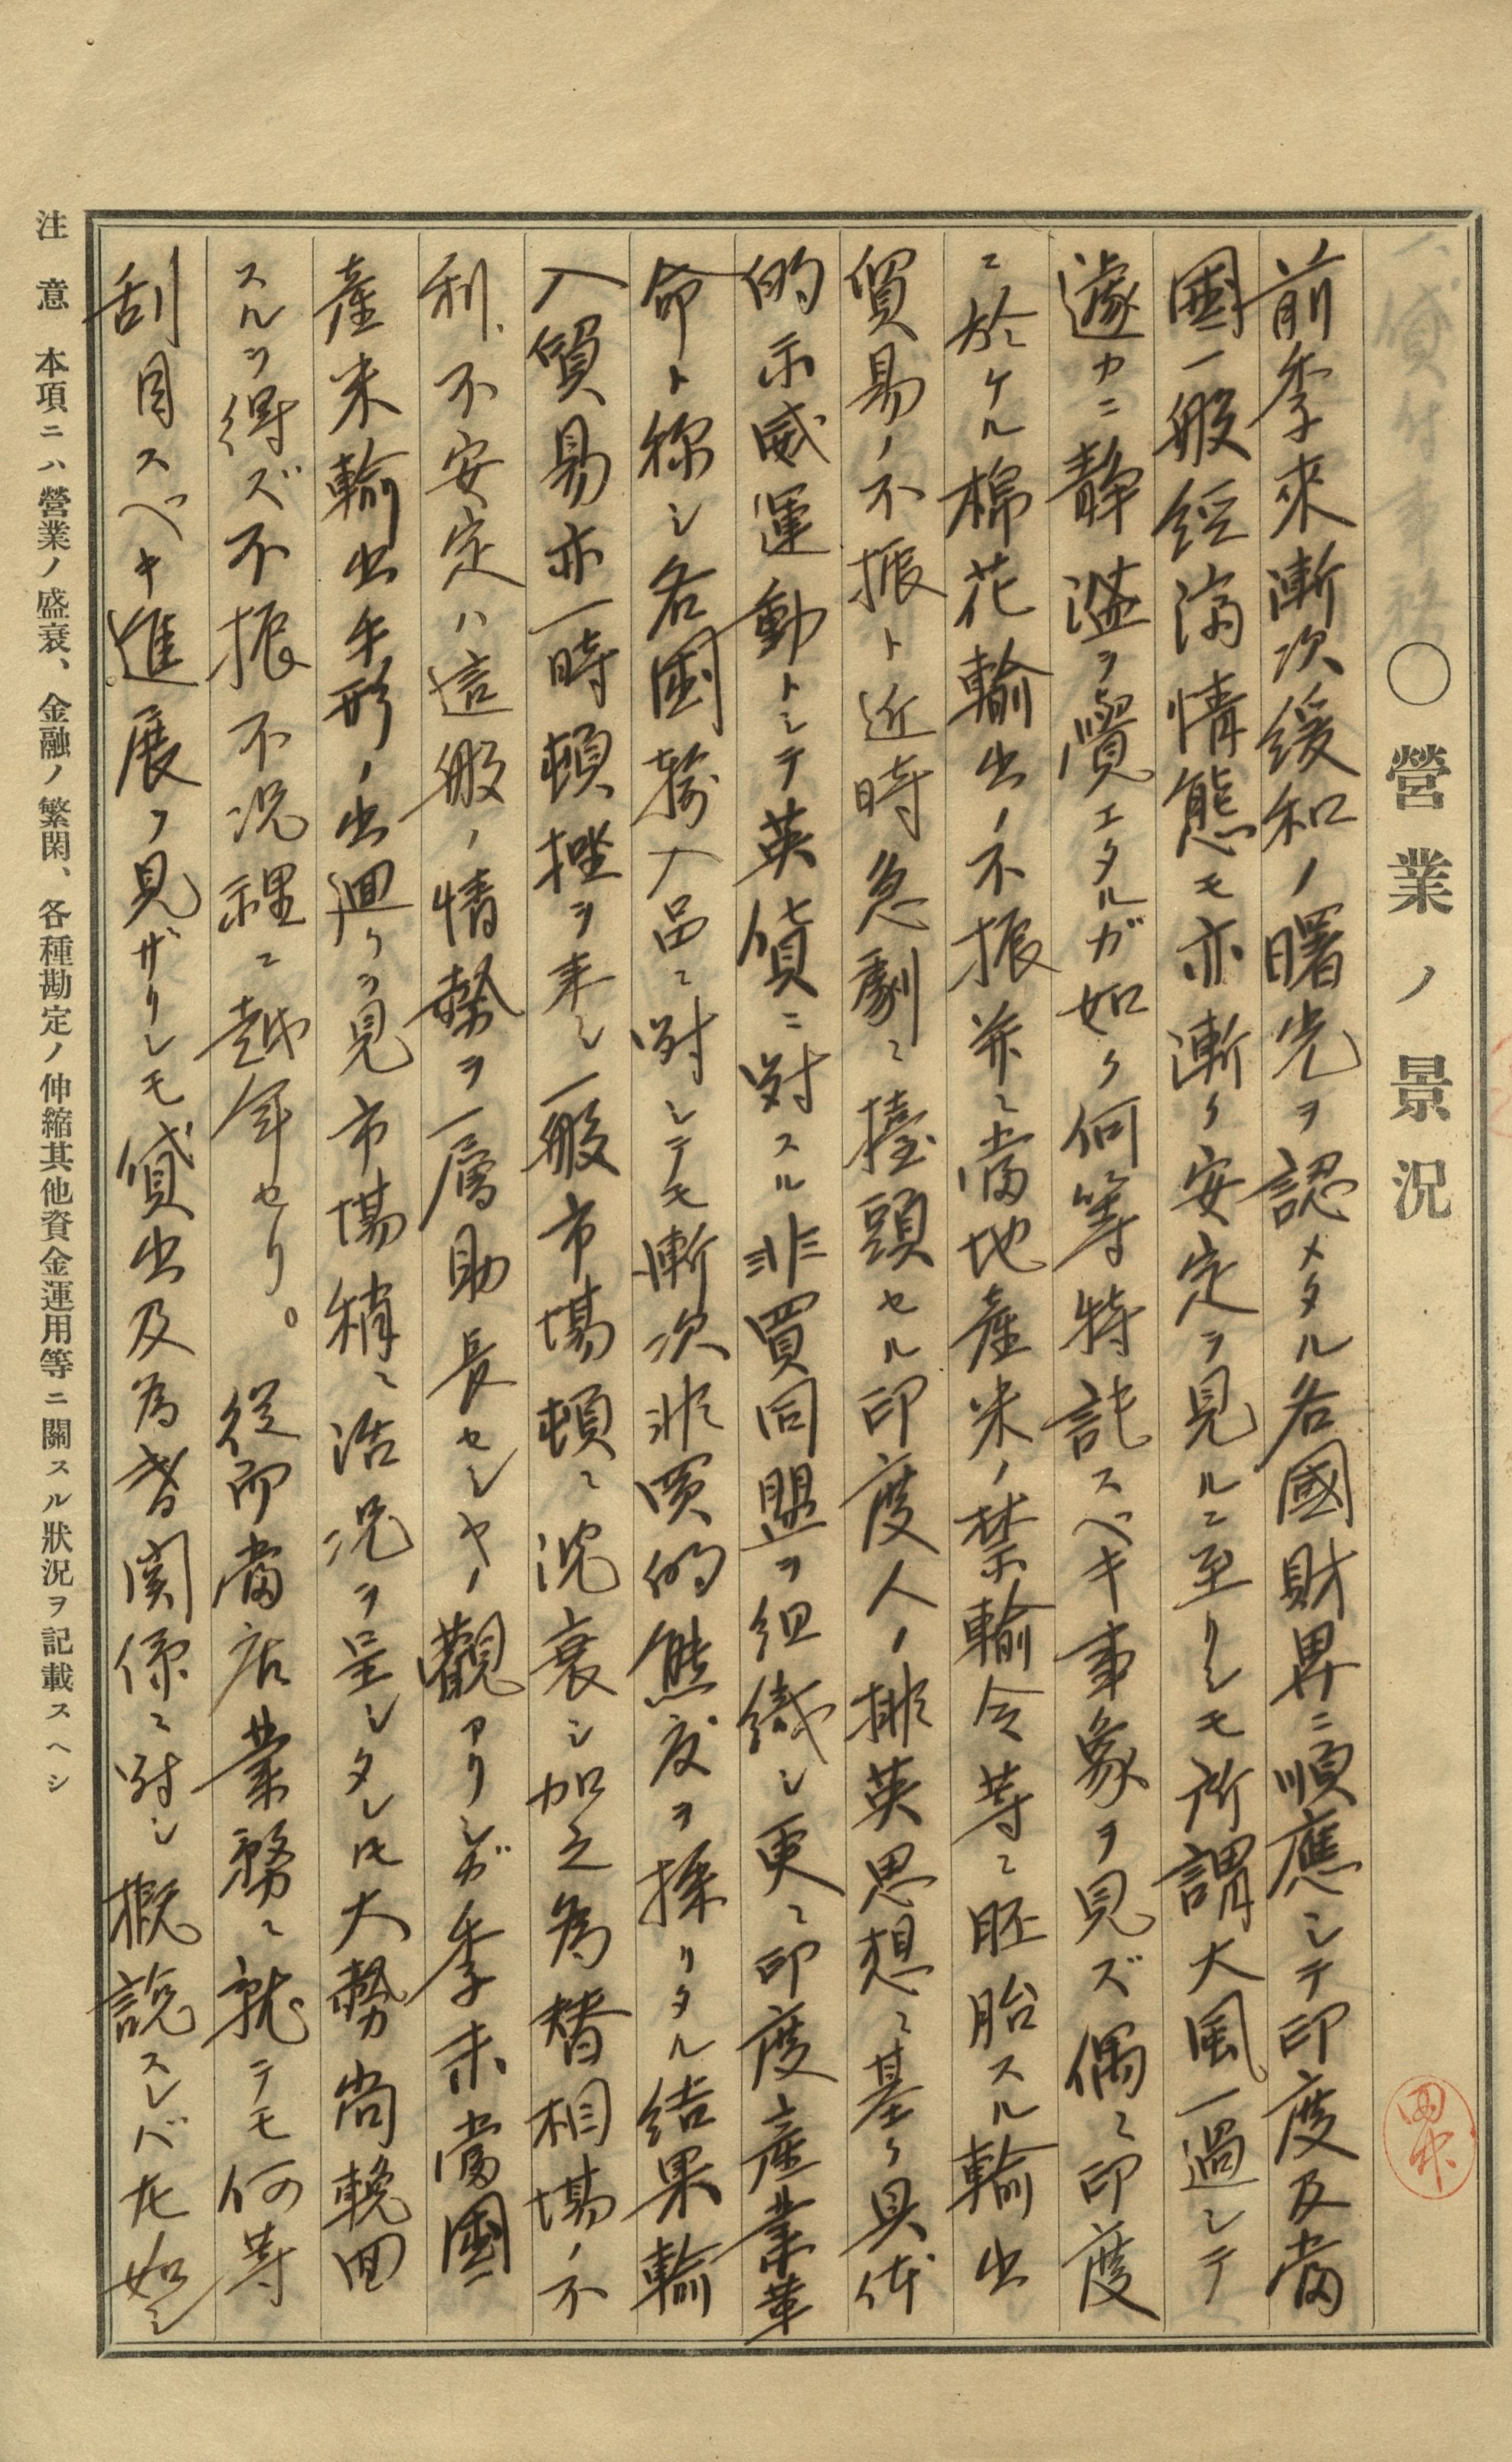 〇營業ノ景況
前季來漸次緩和ノ曙光ヲ認メタル各國財界ニ順應シテ印度及當
國一般経済情態モ亦漸ク安定ヲ見ルニ至リシモ所謂大風一過シテ
遽カニ静謐ヲ覺エタルガ如ク何等特記スベキ事象ヲ見ズ偶々印度
ニ於ケル棉花輸出ノ不振並ニ當地産米ノ禁輸令等ニ胚胎スル輸出
貿易ノ不振ト近時急劇ニ擡頭セル印度人ノ排英思想ニ基ク具体
的示威運動トシテ英貨ニ対スル非買同盟ヲ組織シ更ニ印度産業革
命ト称シ各国輸入品ニ対シテモ漸次非買的態度ヲ採リタル結果輸
入貿易亦一時頓挫ヲ来シ一般市場頓ニ沈衰シ加之為替相場ノ不
利、不安定ハ這般ノ情勢ヲ一層助長セシヤノ觀アリシガ季末當國
産米輸出手形ノ出廻リヲ見市場稍々活況ヲ呈シタレ圧大勢尚輓回
スルヲ得ズ不振不況裡ニ越年セリ。従而當店業務ニ就テモ何等
刮目スベキ進展ヲ見ザリシモ貸出及為替関係ニ対シ概説スレバ左如シ
注意 本項ニハ營業ノ盛衰、金融ノ繁閑、各種勘定ノ伸縮其他資金運用等ニ關スル狀況ヲ記載スヘシ